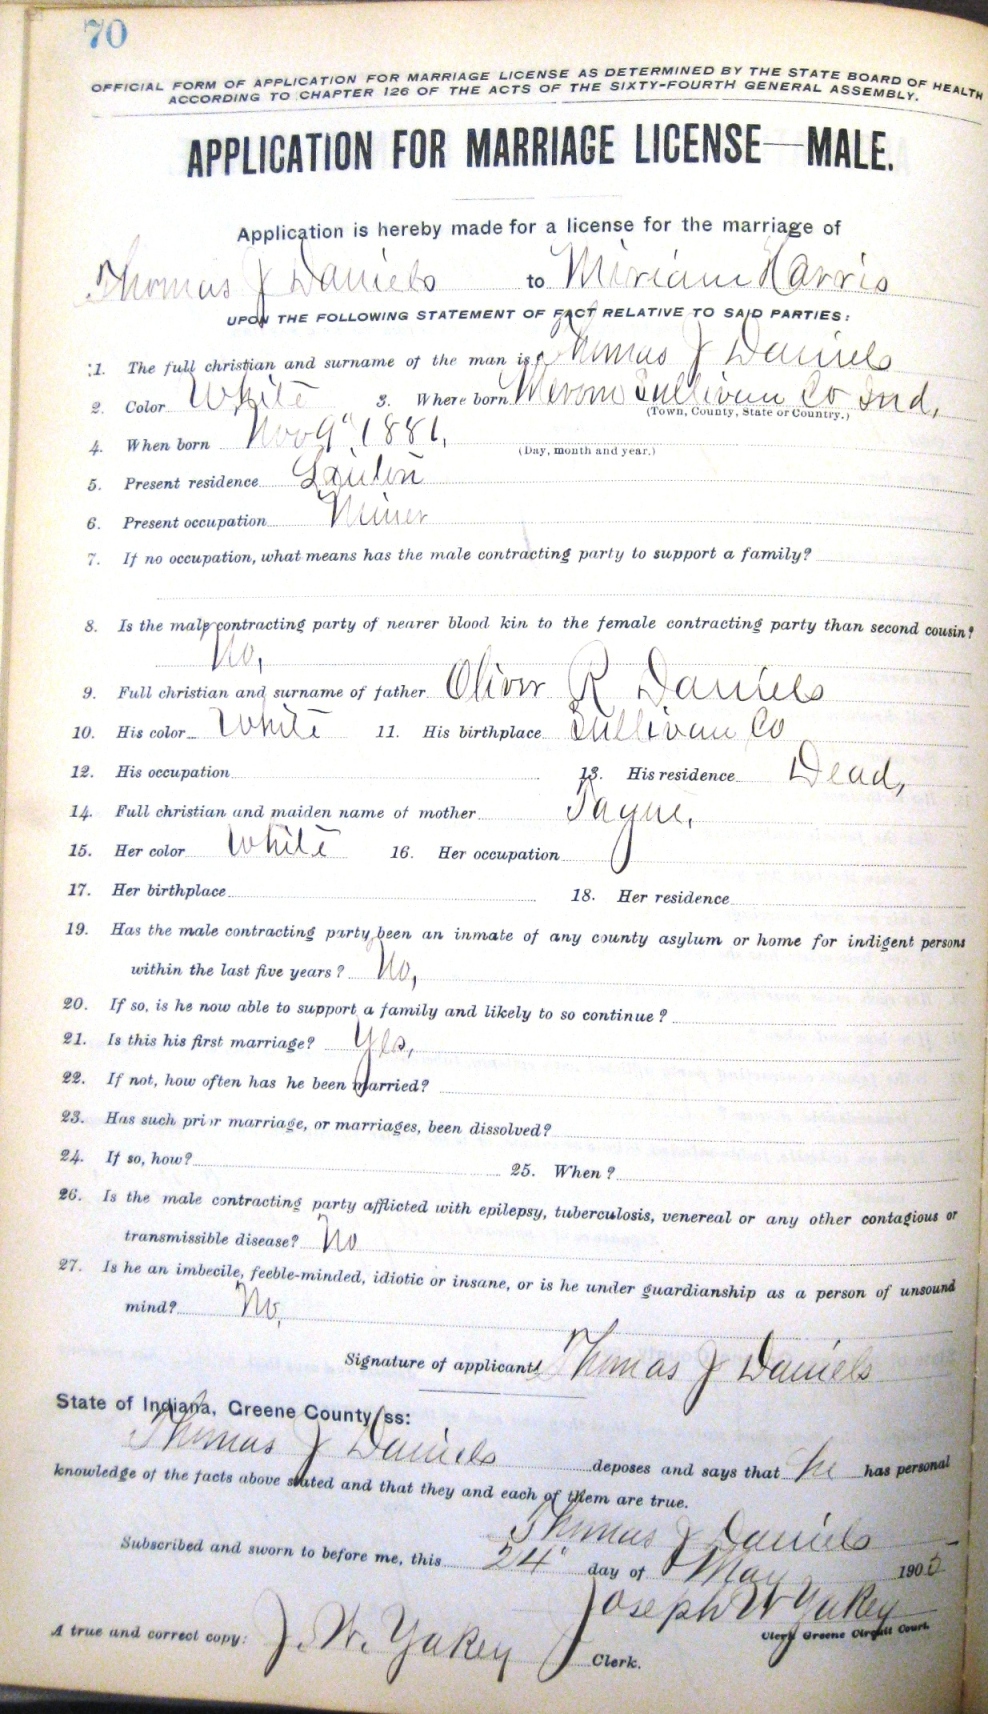 70
OFFICIAL FORM OF APPLICATION FOR MARRIAGE LICENSE AS DETERMINED BY THE STATE BOARD OF HEALTH
ACCORDING TO CHAPTER 126 OF THE ACTS OF THE SIXTY-FOURTH GENERAL ASSEMBLY.
APPLICATION FOR MARRIAGE LICENSE—MALE.
Application is hereby made for a license for the marriage of
Thomas J Daniels to Miriam Harris
UPON THE FOLLOWING STATEMENT OF FACT RELATIVE TO SAID PARTIES:
1. The full christian and surname of the man is Thomas J Daniels
2. Color White 3. Where born Merom Sullivan Co Ind,
(Town, County, State or Country.)
4. When born Nov 9" 1881,
(Day, month and year.)
5. Present residence Linton
6. Present occupation Miner
7. If no occupation, what means has the male contracting party to support a family?
8. Is the male contracting party of nearer blood kin to the female contracting party than second cousin?
No,
9. Full christian and surname of father Oliver R Daniels
10. His color White 11. His birthplace Sullivan Co
12. His occupation 13. His residence Dead,
14. Full christian and maiden name of mother Payne,
15. Her color White 16. Her occupation
17. Her birthplace 18. Her residence
19. Has the male contracting party been an inmate of any county asylum or home for indigent persons
within the last five years? No,
20. If so, is he now able to support a family and likely to so continue?
21. Is this his first marriage? Yes,
22. If not, how often has he been married?
23. Has such prior marriage, or marriages, been dissolved?
24. If so, how? 25. When?
26. Is the male contracting party afflicted with epilepsy, tuberculosis, venereal or any other contagious or
transmissible disease? No
27. Is he an imbecile, feeble-minded, idiotic or insane, or is he under guardianship as a person of unsound
mind? No,
Signature of applicant Thomas J Daniels
State of Indiana, Greene County ss:
Thomas J Daniels deposes and says that he has personal
knowledge of the facts above stated and that they and each of them are true.
Thomas J Daniels
Subscribed and sworn to before me, this 24" day of May 1905
Joseph W Yakey
Clerk Greene Circuit Court.
A true and correct copy: J. W. Yakey Clerk.